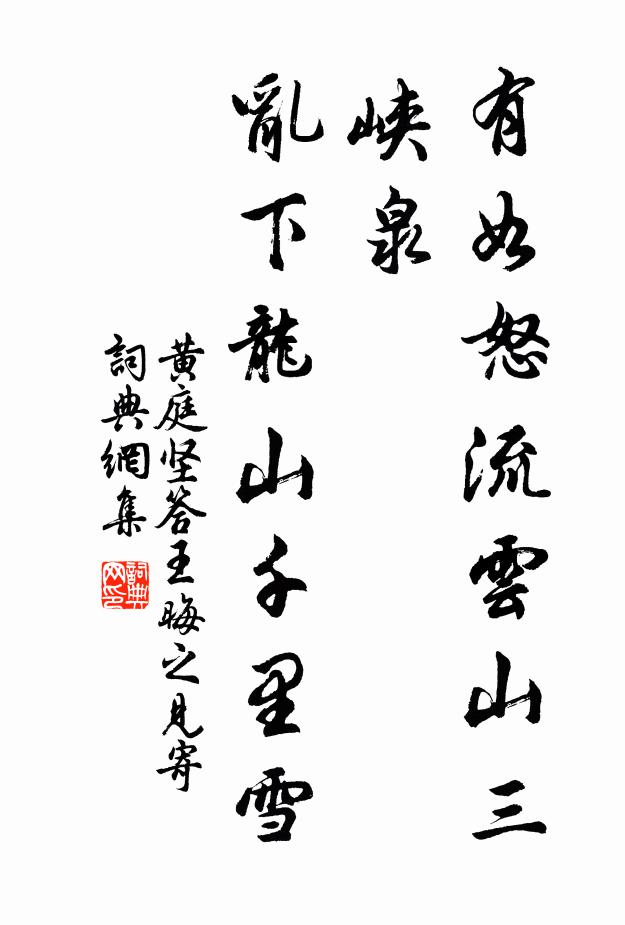 有如怒流雲山三
峽泉
亂下龍山千里雪
黄庭坚答王晦之見寄
詞典網集
詞典网印